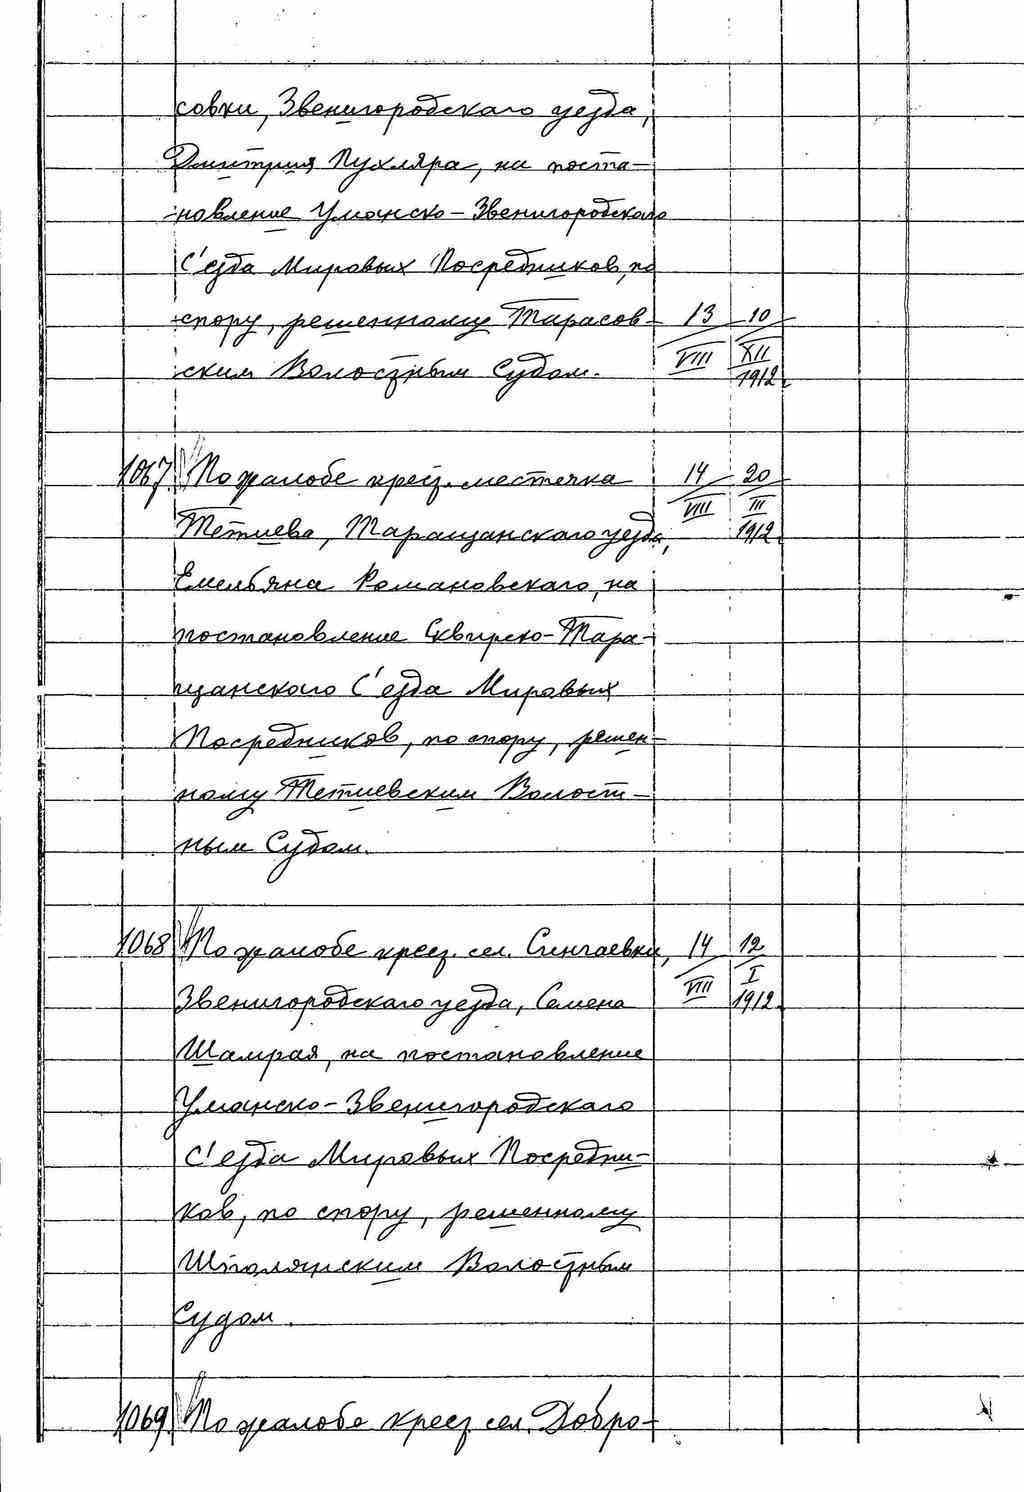 совки, Звенигородскаго уезда,
Дмитрия Пухляра, на поста-
новление Уманско-Звенигородскаго
С'езда Мировых Посредников, по
спору, решенному Тарасов- 13 10
ским Волостным Судом. VIII XII
1912
1067 По жалобе крест. местечка 14 20
VIII III
Тетиева, Таращанскаго уезда, 1912
Емельяна Романовскаго, на
постановление Сквирско-Тара-
щанского С'езда Мировых
Посредников, по спору, решен-
ному Тетиевским Волост-
ным Судом.
1068 По жалобе крест. сел. Сингаевки, 14 12
VIII I
Звенигородскаго уезда, Семена 1912
Шамрая, на постановление
Уманско-Звенигородскаго
С'езда Мировых Посредни-
ков, по спору, решенному
Шполянским Волостным
Судом.
1069 По жалобе крест. сел. Добро-